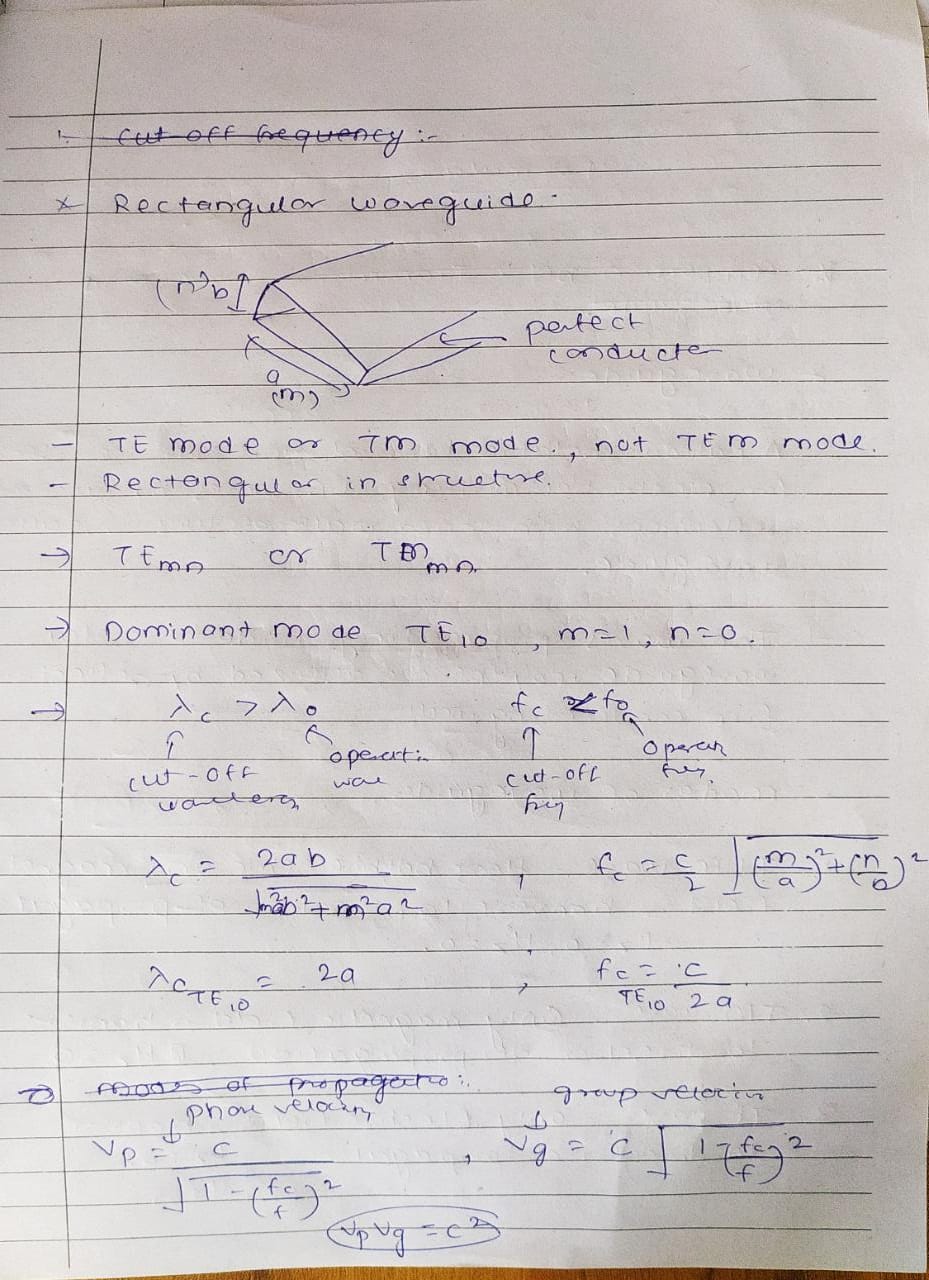 1. Cut off frequency :-
* Rectangular waveguide -
(n) b
perfect
conducter
a
(m)
- TE mode or TM mode., not TEM mode.
- Rectangular in structure.
→ TEmn or TMmn
→ Dominant mode TE10, m=1, n=0.
→ λc > λo fc < fo
operati operan
cut-off wave cut-off freq.
freq
λc = 2ab / √(m²b² + n²a²) , fc = c/2 √((m/a)² + (n/b)²)
λcTE10 = 2a , fcTE10 = c/2a
modes of propagatio :-
phase velocity group velocity
Vp = c / √(1 - (fc/f)²) , Vg = c √(1 - (fc/f)²)
VpVg = c²